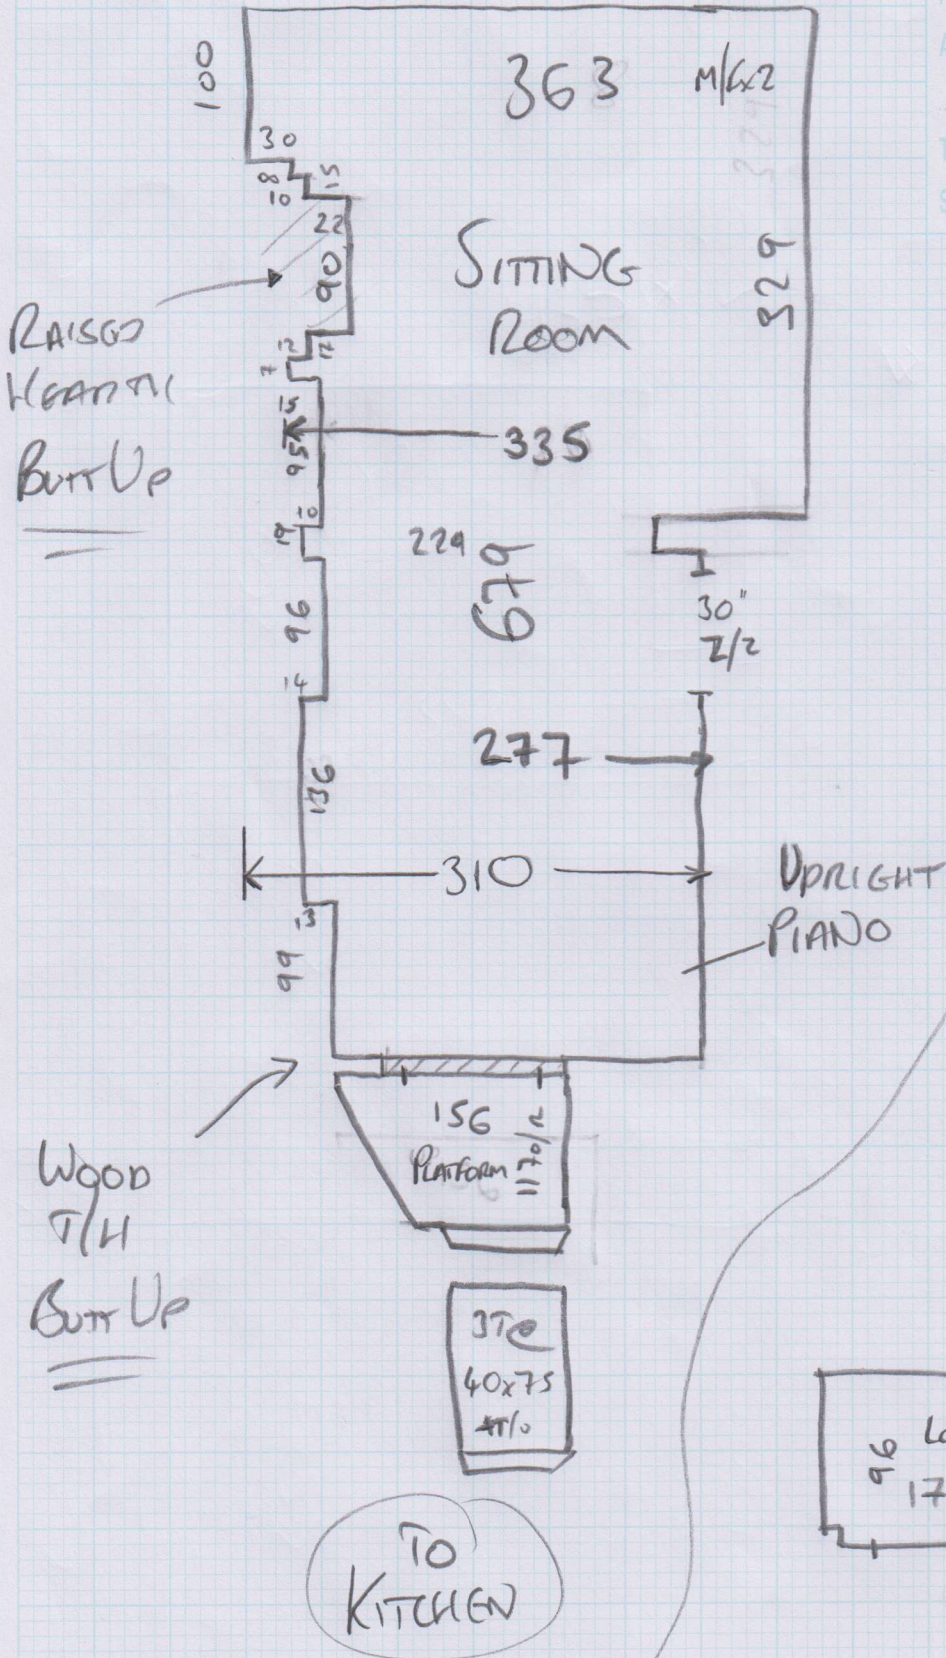 100
363
M/Ex2
30
8
15
10
22
90
SITTING
ROOM
329
RAISED
HEARTH
BUTT UP
12
12
7
15
335
95
10
19
229
679
30"
Z/2
96
14
277
136
310
UPRIGHT
PIANO
13
99
156
PLATFORM
117 o/R
WOOD
T/H
BUTT UP
3T@
40x75
T/o
96
17
TO
KITCHEN